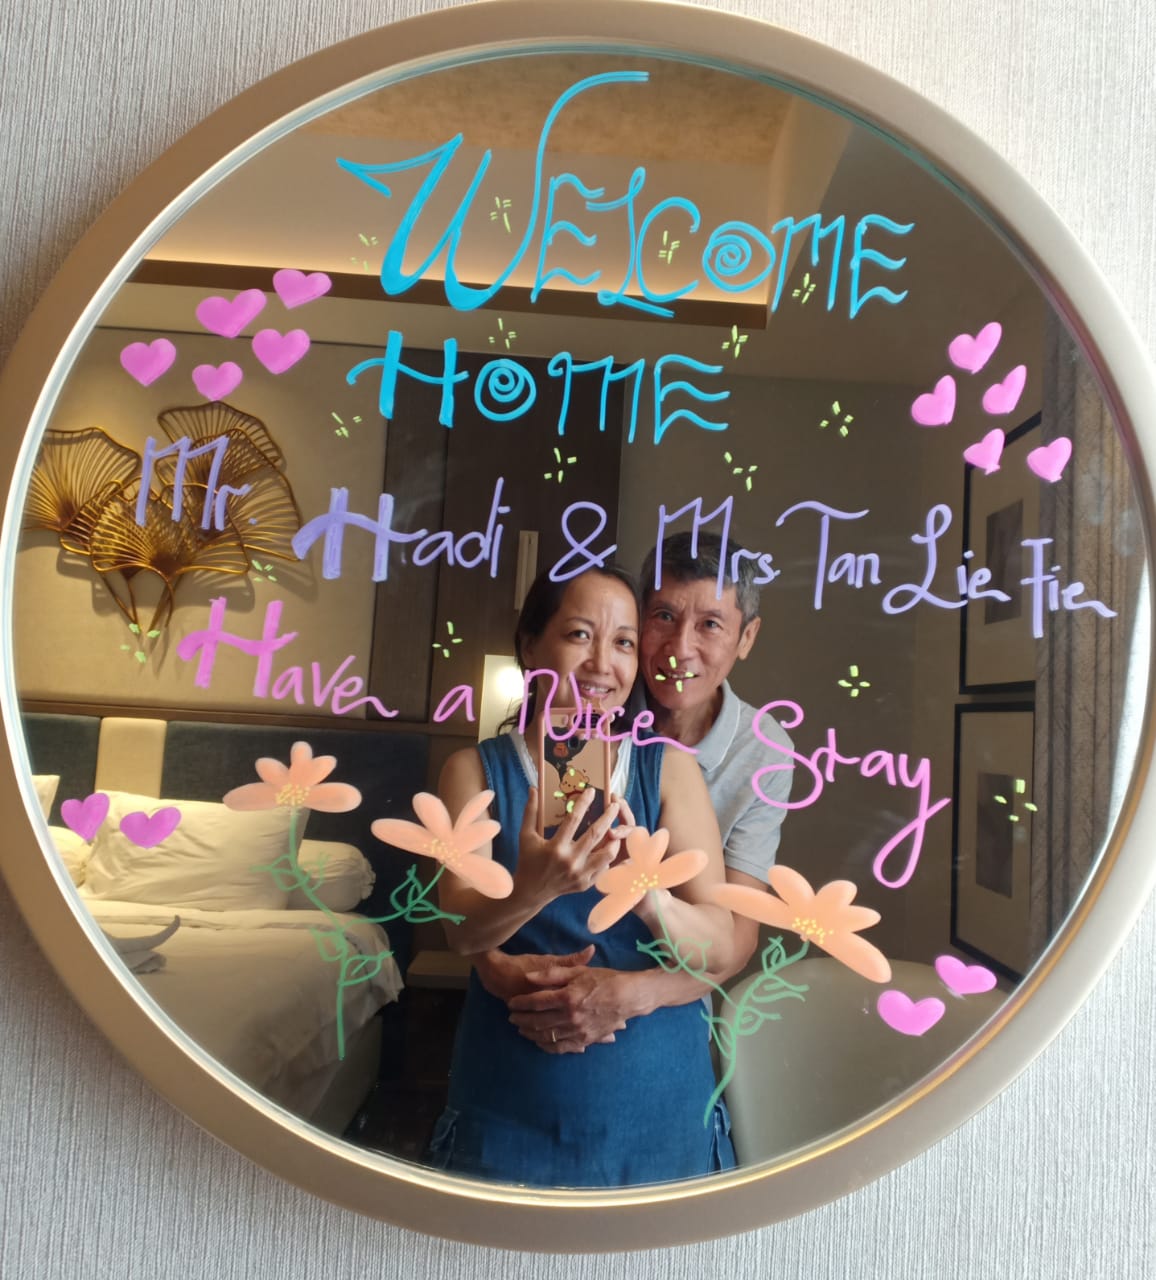 WELCOME
HOME
Mr. Hadi & Mrs. Tan Lie Fie
Have a Nice Stay